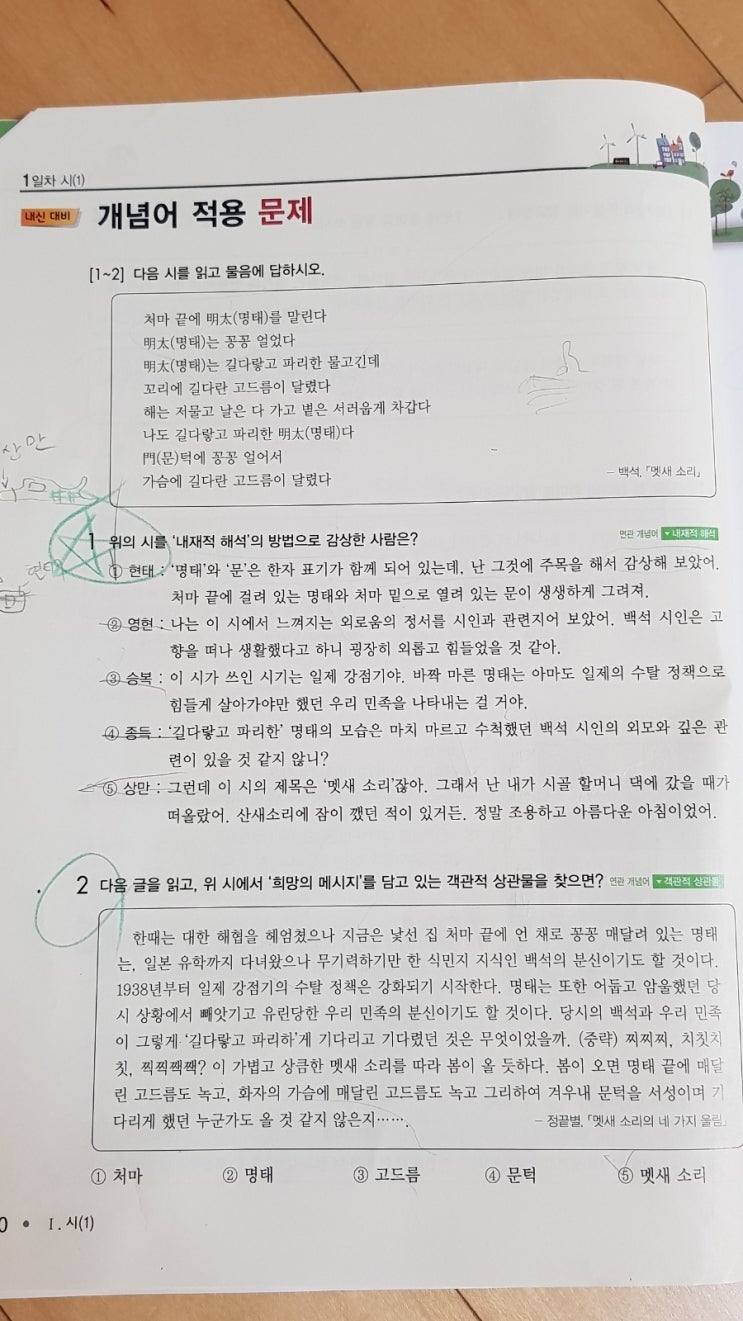 1일차 시(1)
내신 대비 개념어 적용 문제
[1~2] 다음 시를 읽고 물음에 답하시오.
처마 끝에 明太(명태)를 말린다
明太(명태)는 꽁꽁 얼었다
明太(명태)는 길다랗고 파리한 물고긴데
꼬리에 길다란 고드름이 달렸다
해는 저물고 날은 다 가고 볕은 서러웁게 차갑다
나도 길다랗고 파리한 明太(명태)다
門(문)턱에 꽁꽁 얼어서
가슴에 길다란 고드름이 달렸다
- 백석, 「멧새 소리」
산만
1 위의 시를 '내재적 해석'의 방법으로 감상한 사람은? 연관 개념어 내재적 해석
① 현태 : '명태'와 '문'은 한자 표기가 함께 되어 있는데, 난 그것에 주목을 해서 감상해 보았어.
처마 끝에 걸려 있는 명태와 처마 밑으로 열려 있는 문이 생생하게 그려져.
② 영현 : 나는 이 시에서 느껴지는 외로움의 정서를 시인과 관련지어 보았어. 백석 시인은 고
향을 떠나 생활했다고 하니 굉장히 외롭고 힘들었을 것 같아.
③ 승복 : 이 시가 쓰인 시기는 일제 강점기야. 바짝 마른 명태는 아마도 일제의 수탈 정책으로
힘들게 살아가야만 했던 우리 민족을 나타내는 걸 거야.
④ 종득 : '길다랗고 파리한' 명태의 모습은 마치 마르고 수척했던 백석 시인의 외모와 깊은 관
련이 있을 것 같지 않니?
⑤ 상만 : 그런데 이 시의 제목은 '멧새 소리'잖아. 그래서 난 내가 시골 할머니 댁에 갔을 때가
떠올랐어. 산새소리에 잠이 깼던 적이 있거든. 정말 조용하고 아름다운 아침이었어.
2 다음 글을 읽고, 위 시에서 '희망의 메시지'를 담고 있는 객관적 상관물을 찾으면? 연관 개념어 객관적 상관물
한때는 대한 해협을 헤엄쳤으나 지금은 낯선 집 처마 끝에 언 채로 꽁꽁 매달려 있는 명태
는, 일본 유학까지 다녀왔으나 무기력하기만 한 식민지 지식인 백석의 분신이기도 할 것이다.
1938년부터 일제 강점기의 수탈 정책은 강화되기 시작한다. 명태는 또한 어둡고 암울했던 당
시 상황에서 빼앗기고 유린당한 우리 민족의 분신이기도 할 것이다. 당시의 백석과 우리 민족
이 그렇게 '길다랗고 파리하'게 기다리고 기다렸던 것은 무엇이었을까. (중략) 찌찌찌, 치칫치
칫, 찍찍짹짹? 이 가볍고 상큼한 멧새 소리를 따라 봄이 올 듯하다. 봄이 오면 명태 끝에 매달
린 고드름도 녹고, 화자의 가슴에 매달린 고드름도 녹고 그리하여 겨우내 문턱을 서성이며 기
다리게 했던 누군가도 올 것 같지 않은지…….
- 정끝별, 「멧새 소리의 네 가지 울림」
① 처마 ② 명태 ③ 고드름 ④ 문턱 ⑤ 멧새 소리
0 • Ⅰ. 시(1)